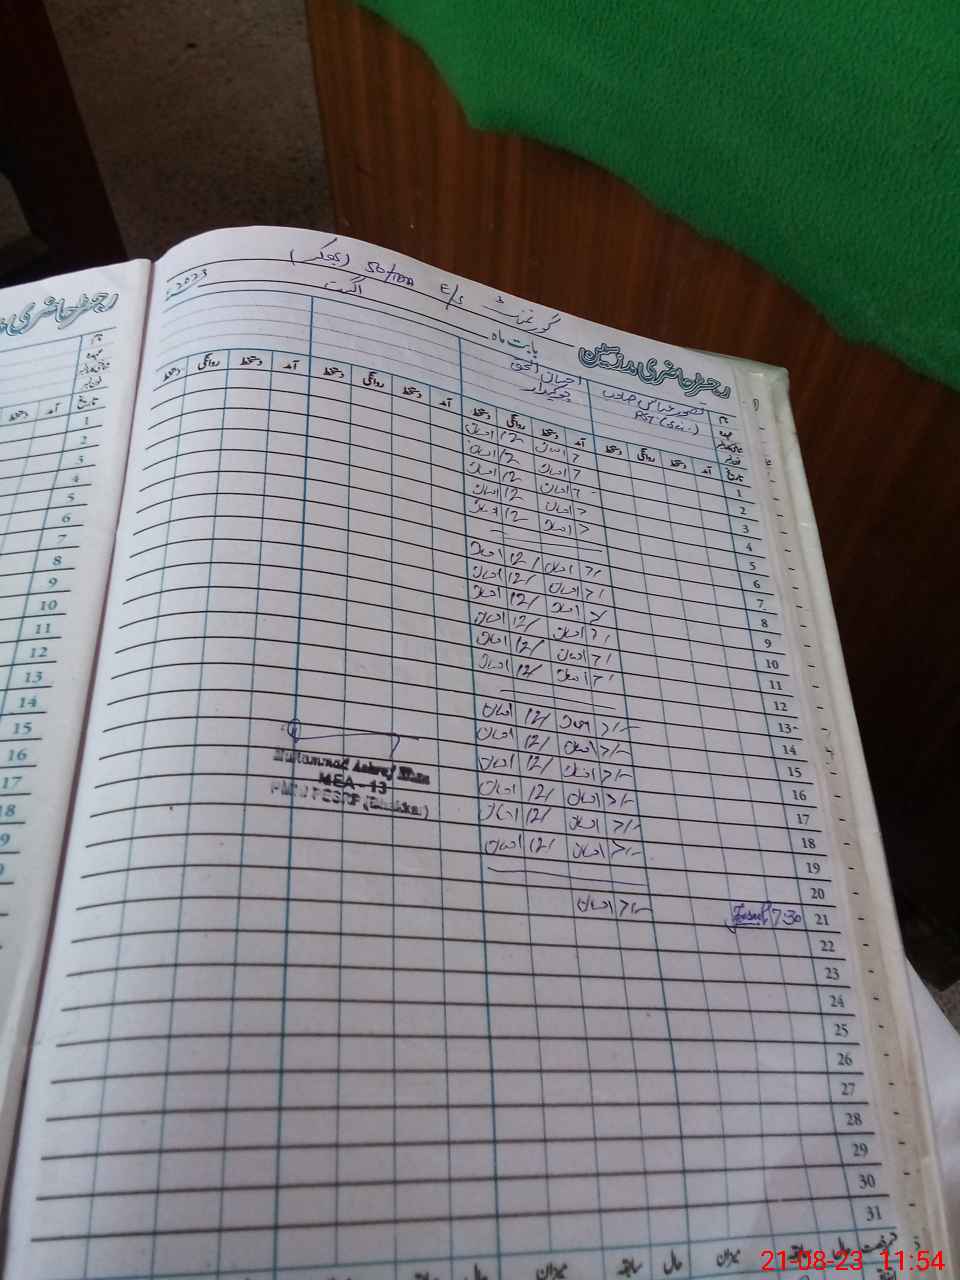 گورنمنٹ E/S 50/TDA (بھکر)
رجسٹر حاضری مدرسین
بابت ماہ اگست 2023ء
رجسٹر حاضری
نام
عہدہ
تصور عباس صاحب
PST
احسان الحق
چوکیدار
تاریخ آمد دستخط روانگی دستخط آمد دستخط روانگی دستخط آمد دستخط روانگی دستخط آمد دستخط روانگی دستخط
1 7 احسان 12 احسان
2 7 احسان 12 احسان
3 7 احسان 12 احسان
4 7 احسان 12 احسان
5 7 احسان 12 احسان
6
7 7/- احسان 12/ احسان
8 7/- احسان 12/ احسان
9 7/- احسان 12/ احسان
10 7/- احسان 12/ احسان
11 7/- احسان 12/ احسان
12 7/- احسان 12/ احسان
13
14 7/- احسان 12/ احسان
15 7/- احسان 12/ احسان
16 7/- احسان 12/ احسان
17 7/- احسان 12/ احسان
18 7/- احسان 12/ احسان
19 7/- احسان 12/ احسان
20
21 7:30 احسان 7/-
22
23
24
25
26
27
28
29
30
31
Muhammad Ashraf Khan
MEA - 13
PMIU PESRP (Bhakkar)
رخصت حال سابقہ میزان حال سابقہ میزان
1
2
3
4
5
6
7
8
9
10
11
12
13
14
15
16
17
18
21-08-23 11:54